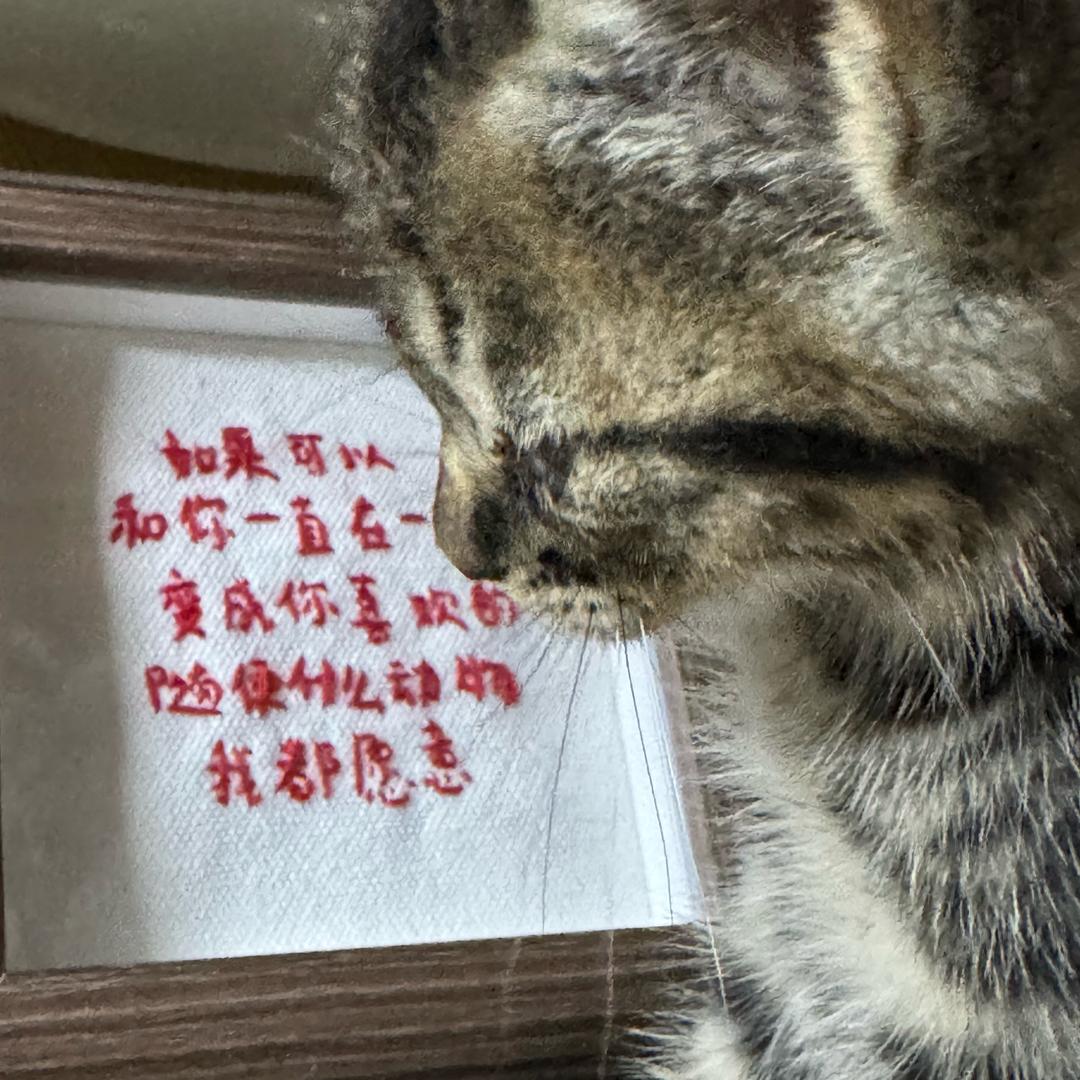 如果可以
和你一直在一
变成你喜欢的
随便什么动物
我都愿意